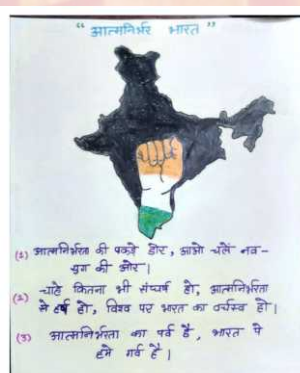 “ आत्मनिर्भर भारत ”
(1) आत्मनिर्भरता की पकड़े डोर, आओ चलें नव-
युग की ओर।
(2) चाहे कितना भी संघर्ष हो, आत्मनिर्भरता
मे हर्ष हो, विश्व पर भारत का वर्चस्व हो।
(3) आत्मनिर्भरता का पर्व है, भारत पे
हमे गर्व है।